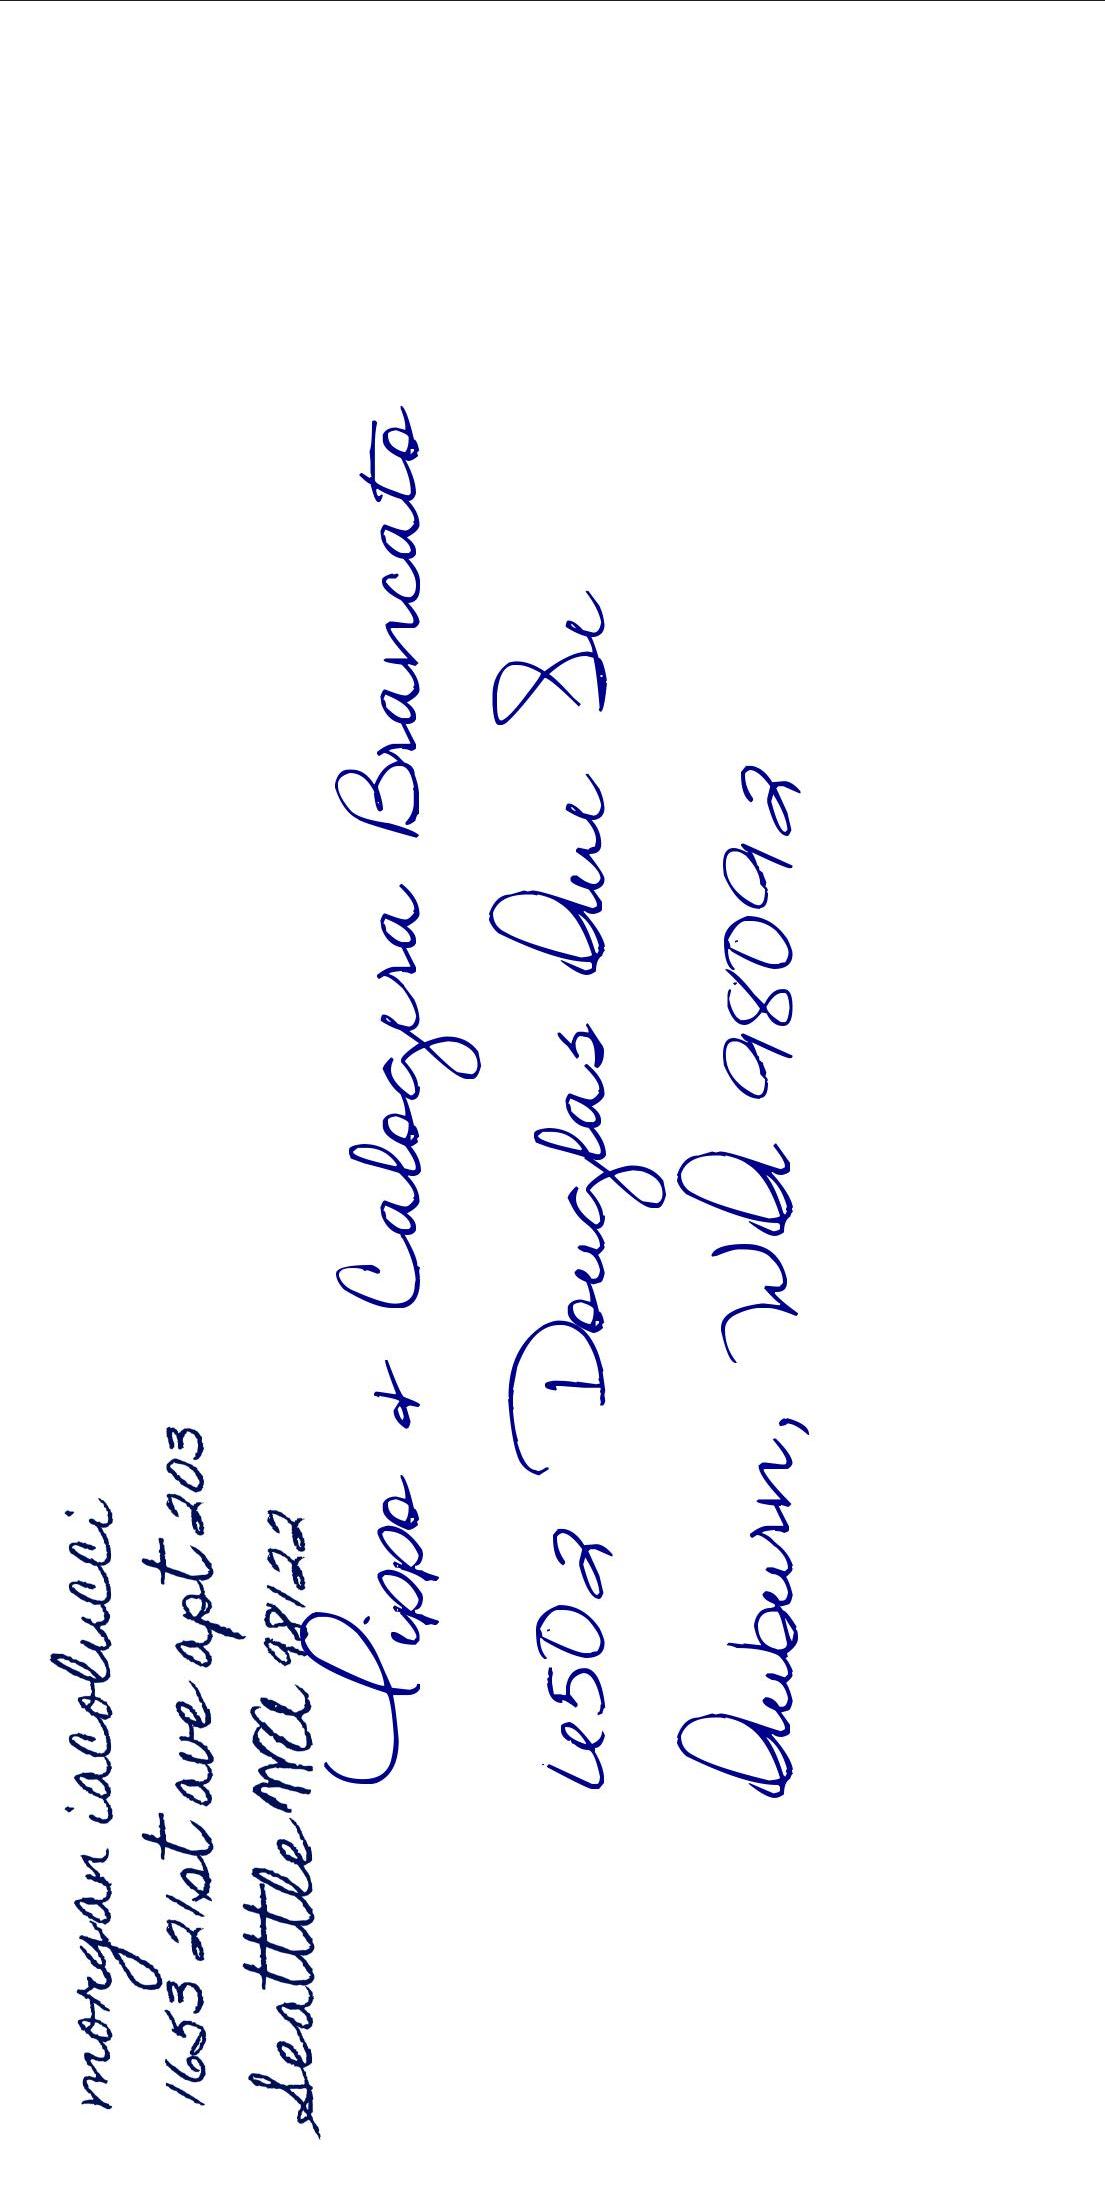 morgan iacolucci
1653 21st ave apt 203
Seattle WA 98122
Pippo & Calogera Brancato
6502 Douglas Ave Se
Auburn, WA 98092